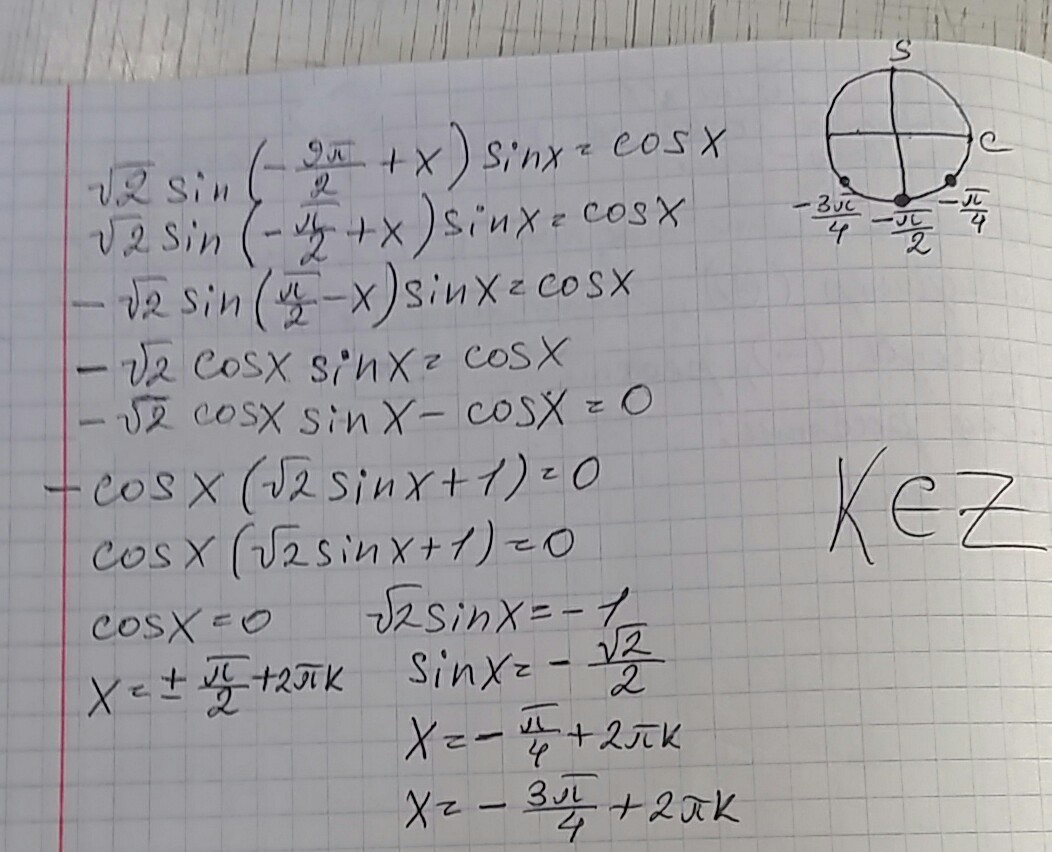 √2 sin (-9π/2 + x) sinx = cosx
√2 sin (-π/2 + x) sinx = cosx
- √2 sin (π/2 - x) sinx = cosx
- √2 cosx sinx = cosx
- √2 cosx sinx - cosx = 0
- cosx (√2 sinx + 1) = 0
cosx (√2 sinx + 1) = 0
cosx = 0 √2 sinx = - 1
x = ± π/2 + 2πk sinx = - √2/2
x = - π/4 + 2πk
x = - 3π/4 + 2πk
S
C
-3π/4 -π/2 -π/4
K ∈ Z